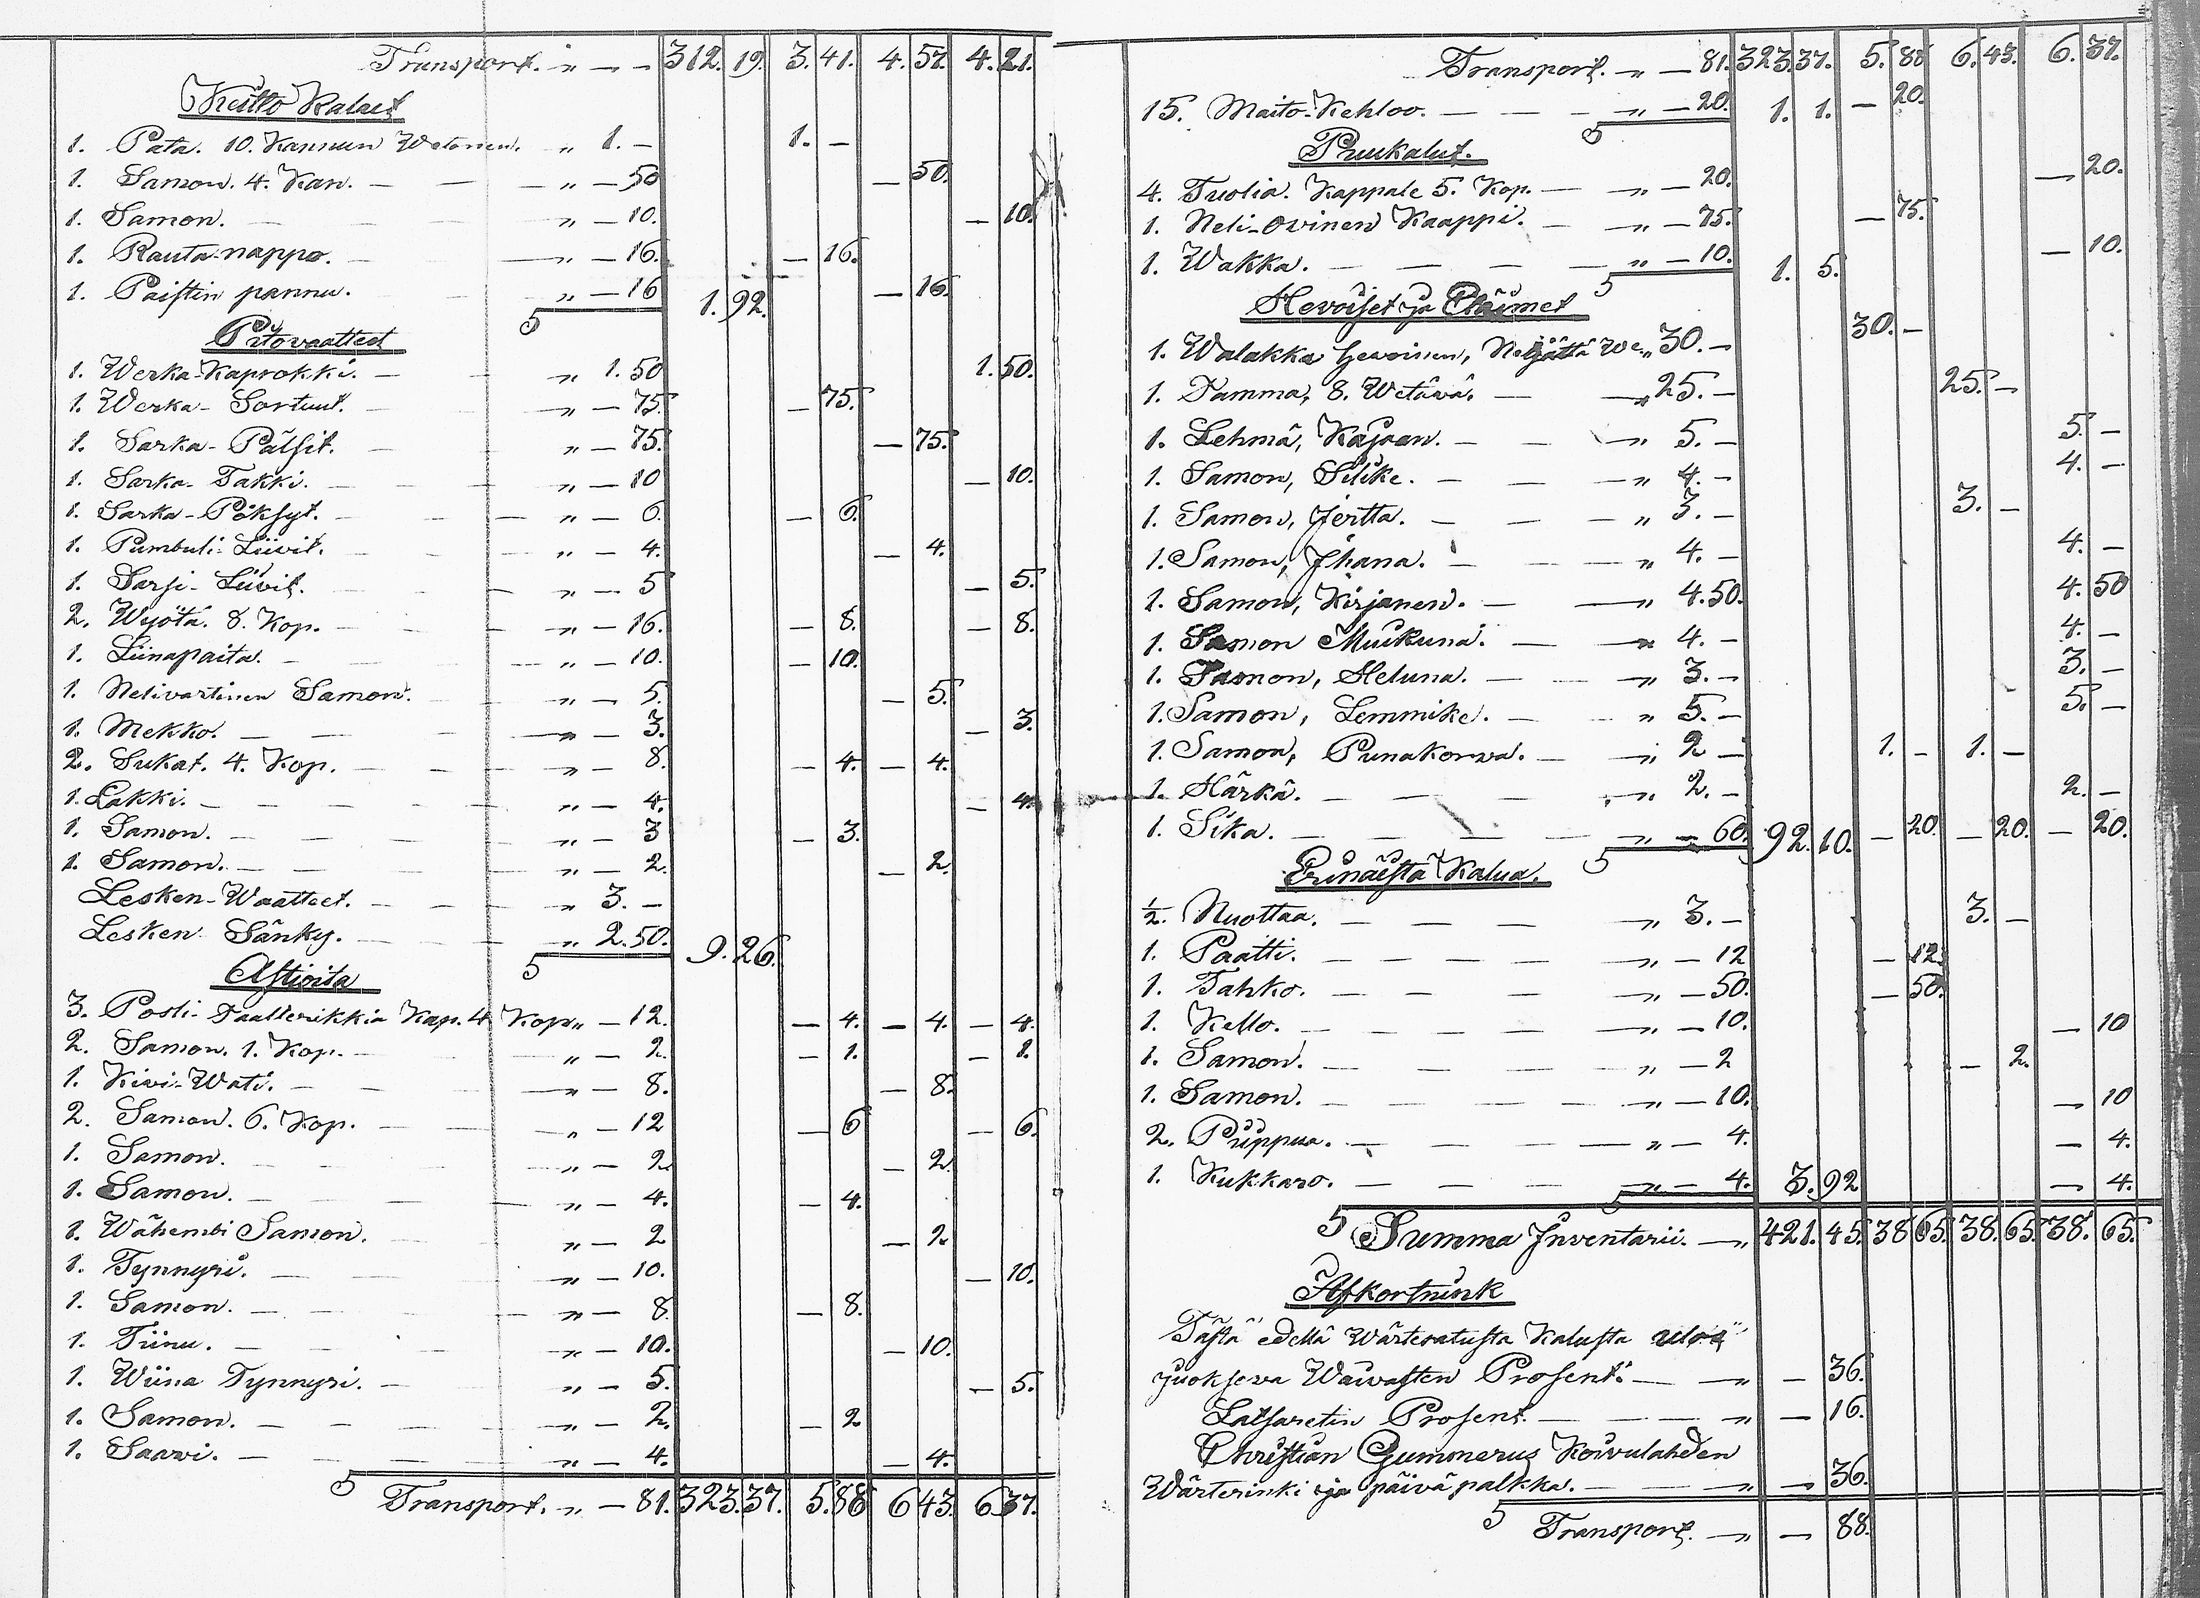 Transport. „ — — 312. 19. 3. 41. 4. 57. 4. 21.
Keitto Kalaet
1. Pata. 10. Kannun Wetonen. „ 1. — 1. —
1. Samon. 4. Kan. — — „ — 50 — 50.
1. Samon. — — „ — 10. — 10.
1. Rauta-nappo. — — „ — 16. — 16.
1. Paistin pannu. — „ — 16 1. 92. — 16.
Pitovaatteet
1. Werka-Kaprokki. — „ 1. 50 1. 50.
1. Werka-Sortuut. — „ — 75. — 75.
1. Sarka-Pälsit. — „ — 75. — 75.
1. Sarka-Takki. — — „ — 10 — 10.
1. Sarka-Pöksyt. — — „ — 6. — 6.
1. Pumbuli-Liivit. — — „ — 4. — 4.
1. Sarsi-Liivit. — — „ — 5 — 5.
2. Wyötä. 8. Kop. — — „ — 16. — 8. — 8.
1. Liinapaita. — — „ — 10. — 10.
1. Nelivartinen Samon. — „ — 5. — 5.
1. Mekko. — — — „ — 3. — 3.
2. Sukat. 4. Kop. — — „ — 8. — 4. — 4.
1. Lakki. — — — „ — 4. — 4.
1. Samon. — — — „ — 3 — 3.
1. Samon. — — — „ — 2. — 2.
Lesken-Waatteet. — — „ 3. —
Lesken Sänky. — — „ 2. 50. 9. 26.
Astioita
3. Posli-Taallerikkia Kap. 4 Kop. „ — 12. — 4. — 4. — 4.
2. Samon. 1. Kop. — „ — 2. — 1. — 1.
1. Kivi-Wati. — — „ — 8. — 8.
2. Samon. 6. Kop. — — „ — 12 — 6 — 6.
1. Samon. — — „ — 2. — 2.
1. Samon. — — — „ — 4. — 4.
1. Wähembi Samon. — „ — 2 — 2.
1. Tynnyri. — — „ — 10. — 10.
1. Samon. — — — „ — 8. — 8.
1. Tiinu. — — — „ — 10. — 10.
1. Wiina Tynnyri. — „ — 5. — 5.
1. Samon. — — — „ — 2. — 2
1. Saawi. — — — „ — 4. — 4.
Transport. „ — 81. 323. 37. 5. 88 6 43. 6. 37.
Transport. „ — 81. 323. 37. 5. 88 6. 43. 6. 37.
15. Maito-Kehloo. — — — „ — 20. 1. 1. — 20.
Puukalut.
4. Tuolia. Kappale 5. Kop. — „ — 20. — 20.
1. Neli-Ovinen Kaappi. — „ — 75. — 75.
1. Wakka. — — — — „ — 10. 1. 5. — 10.
Hevoiset ja Eläimet
1. Walakka hevoinen, Neljättä We. „ 30. — 30. —
1. Tamma, 8. Wetävä. — „ 25. — 25. —
1. Lehmä, Kajaan. — — „ 5. — 5. —
1. Samon, Silike. — — „ 4. — 4. —
1. Samon, Jertta. — — „ 3. — 3. —
1. Samon, Ihana. — — „ 4. — 4. —
1. Samon, Kirjanen. — — „ 4. 50. 4. 50
1. Samon Muikuna. — — „ 4. — 4. —
1. Samon, Heluna. — — „ 3. — 3. —
1. Samon, Lemmike. — — „ 5. — 5. —
1. Samon, Punakorwa. — „ 2 — 1. — 1. —
1. Härkä. — — — „ 2. — 2. —
1. Sika. — — — — „ — 60. 92. 10. — 20. — 20. — 20.
Erinäistä Kalua.
½. Nuottaa. — — — „ 3. — 3. —
1. Paatti. — — — — „ — 12 — 12.
1. Tahko. — — — „ — 50. — 50.
1. Kello. — — — — „ — 10. — 10
1. Samon. — — — — „ — 2 — 2.
1. Samon. — — — — „ — 10. — 10
2. Piippua. — — — — „ — 4. — 4.
1. Kukkaro. — — — — „ — 4. 3. 92 — 4.
Summa Inventarii. — „ 421. 45. 38 65. 38. 65. 38. 65.
Afkortnink
Tästä edellä Wärteratusta Kalusta ulos
juokseva Waivasten Prosenti — „ — 36.
Latsaretin Prosent. — — — „ — 16.
Christian Gummerus Koivulahden
Wärterinki ja päivä palkka. — — „ — 36.
Transport. — „ — 88.